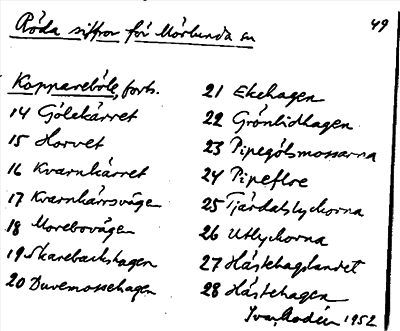 49
Röda siffror för Mörlunda sn
Kopparebole, forts.
14 Gölekärret
15 Horvet
16 Kvarnkärret
17 Kvarnkärrsvägen
18 Morebovägen
19 Skarebackshagen
20 Duvemossehagen
21 Ekehagen
22 Grönlidhagen
23 Pipegölsmossarna
24 Pipefloe
25 Tjärdalslyckorna
26 Utlyckorna
27 Hästehagslandet
28 Hästehagen
Ivar Modéer 1952